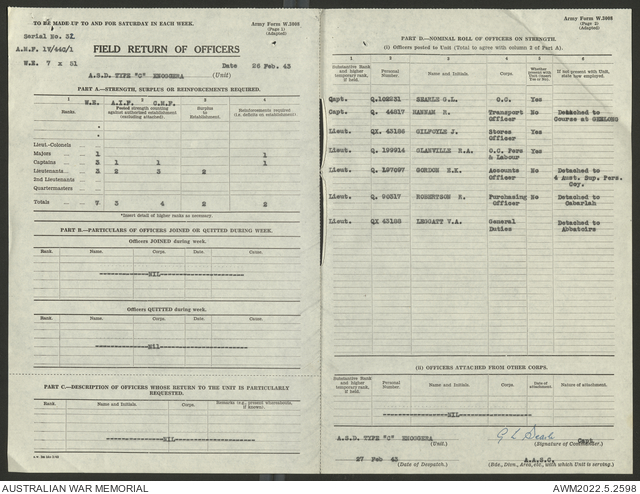 TO BE MADE UP TO AND FOR SATURDAY IN EACH WEEK.
Army Form W.3008
(Page 1)
(Adapted)
Serial No. 32
A.M.F. 1V/442/1
FIELD RETURN OF OFFICERS
W.E. 7 x 51
Date 26 Feb. 43
A.S.D. TYPE "C" ENOGGERA (Unit)
PART A.—STRENGTH, SURPLUS OR REINFORCEMENTS REQUIRED.
1 2 3 4
W.E. A.I.F. C.M.F.
Ranks. Posted strength counting against authorised establishment (excluding attached). Surplus to Establishment. Reinforcements required (i.e. deficits on establishment).
Lieut.-Colonels
Majors 1 1
Captains 3 1 1 1
Lieutenants 3 2 3 2
2nd Lieutenants
Quartermasters
Totals 7 3 4 2 2
*Insert detail of higher ranks as necessary.
PART B.—PARTICULARS OF OFFICERS JOINED OR QUITTED DURING WEEK.
Officers JOINED during week.
Rank. Name. Corps. Date.
NIL
Officers QUITTED during week.
Rank. Name. Corps. Date.
Nil
PART C.—DESCRIPTION OF OFFICERS WHOSE RETURN TO THE UNIT IS PARTICULARLY REQUESTED.
Rank. Name and Initials. Corps. Remarks (e.g., present whereabouts, if known).
NIL
Army Form W.3008
(Page 2)
(Adapted)
PART D.—NOMINAL ROLL OF OFFICERS ON STRENGTH.
(i) Officers posted to Unit (Total to agree with column 2 of Part A).
1 2 3 4 5 6
Substantive Rank and higher temporary rank, if held. Personal Number. Name and Initials. Corps. Whether present with Unit (insert Yes or No). If not present with Unit, state how employed.
Capt. Q.102231 SEARLE G.L. O.C. Yes
Capt. Q. 44817 HANNAM R. Transport Officer No Detached to Course at GEELONG
Lieut. QX. 43186 GILFOYLE J. Stores Officer Yes
Lieut. Q. 199914 GLANVILLE R.A. O.C. Pers & Labour Yes
Lieut. Q. 197097 GORDON H.K. Accounts Officer No Detached to 4 Aust. Sup. Pers. Coy.
Lieut. Q. 90317 ROBERTSON R. Purchasing Officer No Detached to Cabarlah
Lieut. QX 43188 LEGGATT V.A. General Duties Detached to Abbatoirs
(ii) OFFICERS ATTACHED FROM OTHER CORPS.
Substantive Rank and higher temporary rank, if held. Personal Number. Name and Initials. Corps. Date of attachment. Nature of attachment.
NIL
A.S.D. TYPE "C" ENOGGERA
(Unit.)
G L Searle Capt
(Signature of Commander.)
27 Feb 43
(Date of Despatch.)
A.A.S.C.
(Bde., Divn., Area, etc., with which Unit is serving.)
AUSTRALIAN WAR MEMORIAL
AWM2022.5.2598